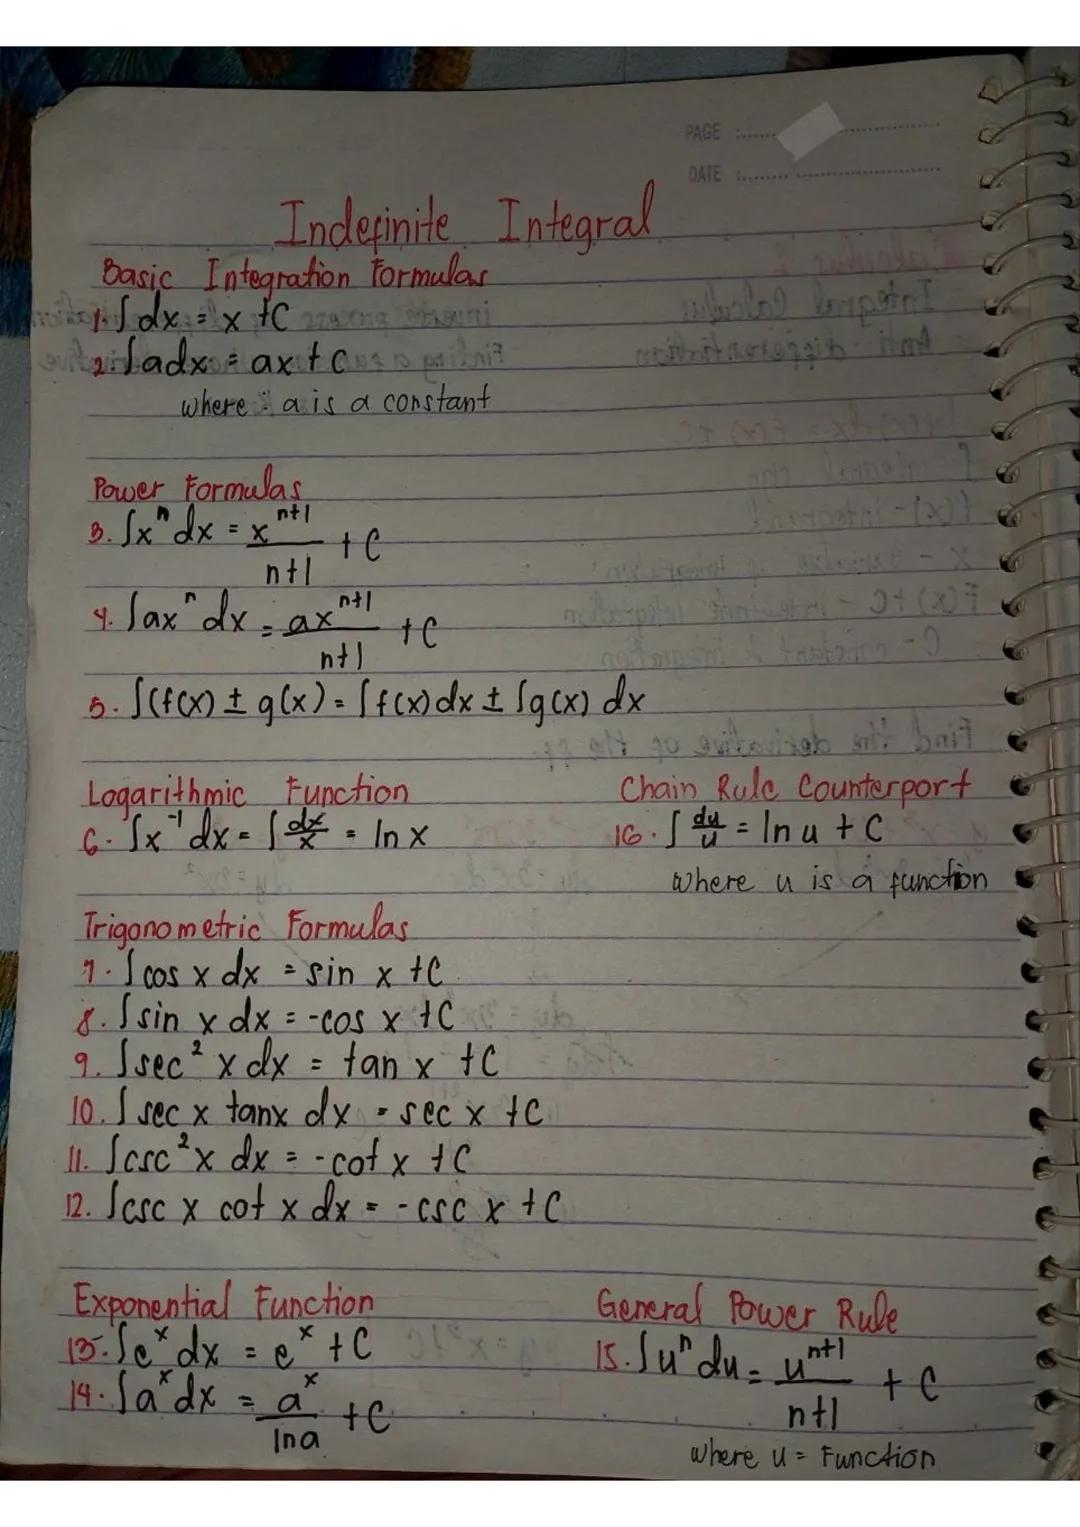 PAGE :
DATE :
Indefinite Integral
Basic Integration Formulas
1. ∫dx = x + C
2. ∫adx = ax + C
where : a is a constant
Power Formulas
3. ∫xⁿ dx = xⁿ⁺¹/n+1 + C
4. ∫axⁿ dx = axⁿ⁺¹/n+1 + C
5. ∫(f(x) ± g(x) = ∫f(x)dx ± ∫g(x) dx
Logarithmic Function
6. ∫x⁻¹ dx = ∫dx/x = ln x
Chain Rule Counterport
16. ∫du/u = ln u + C
where u is a function
Trigonometric Formulas
7. ∫cos x dx = sin x + C
8. ∫sin x dx = -cos x + C
9. ∫sec² x dx = tan x + C
10. ∫sec x tanx dx = sec x + C
11. ∫csc² x dx = -cot x + C
12. ∫csc x cot x dx = -csc x + C
Exponential Function
13. ∫eˣ dx = eˣ + C
14. ∫aˣ dx = aˣ/ln a + C
General Power Rule
15. ∫uⁿ du = uⁿ⁺¹/n+1 + C
where u = Function